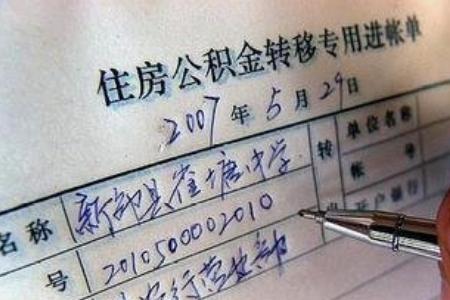 住房公积金转移专用进帐单
2007年5月29日
名称 新 县崔塘中学 转 单位名称
号 2010500002010 帐号
行营业部 开户银行